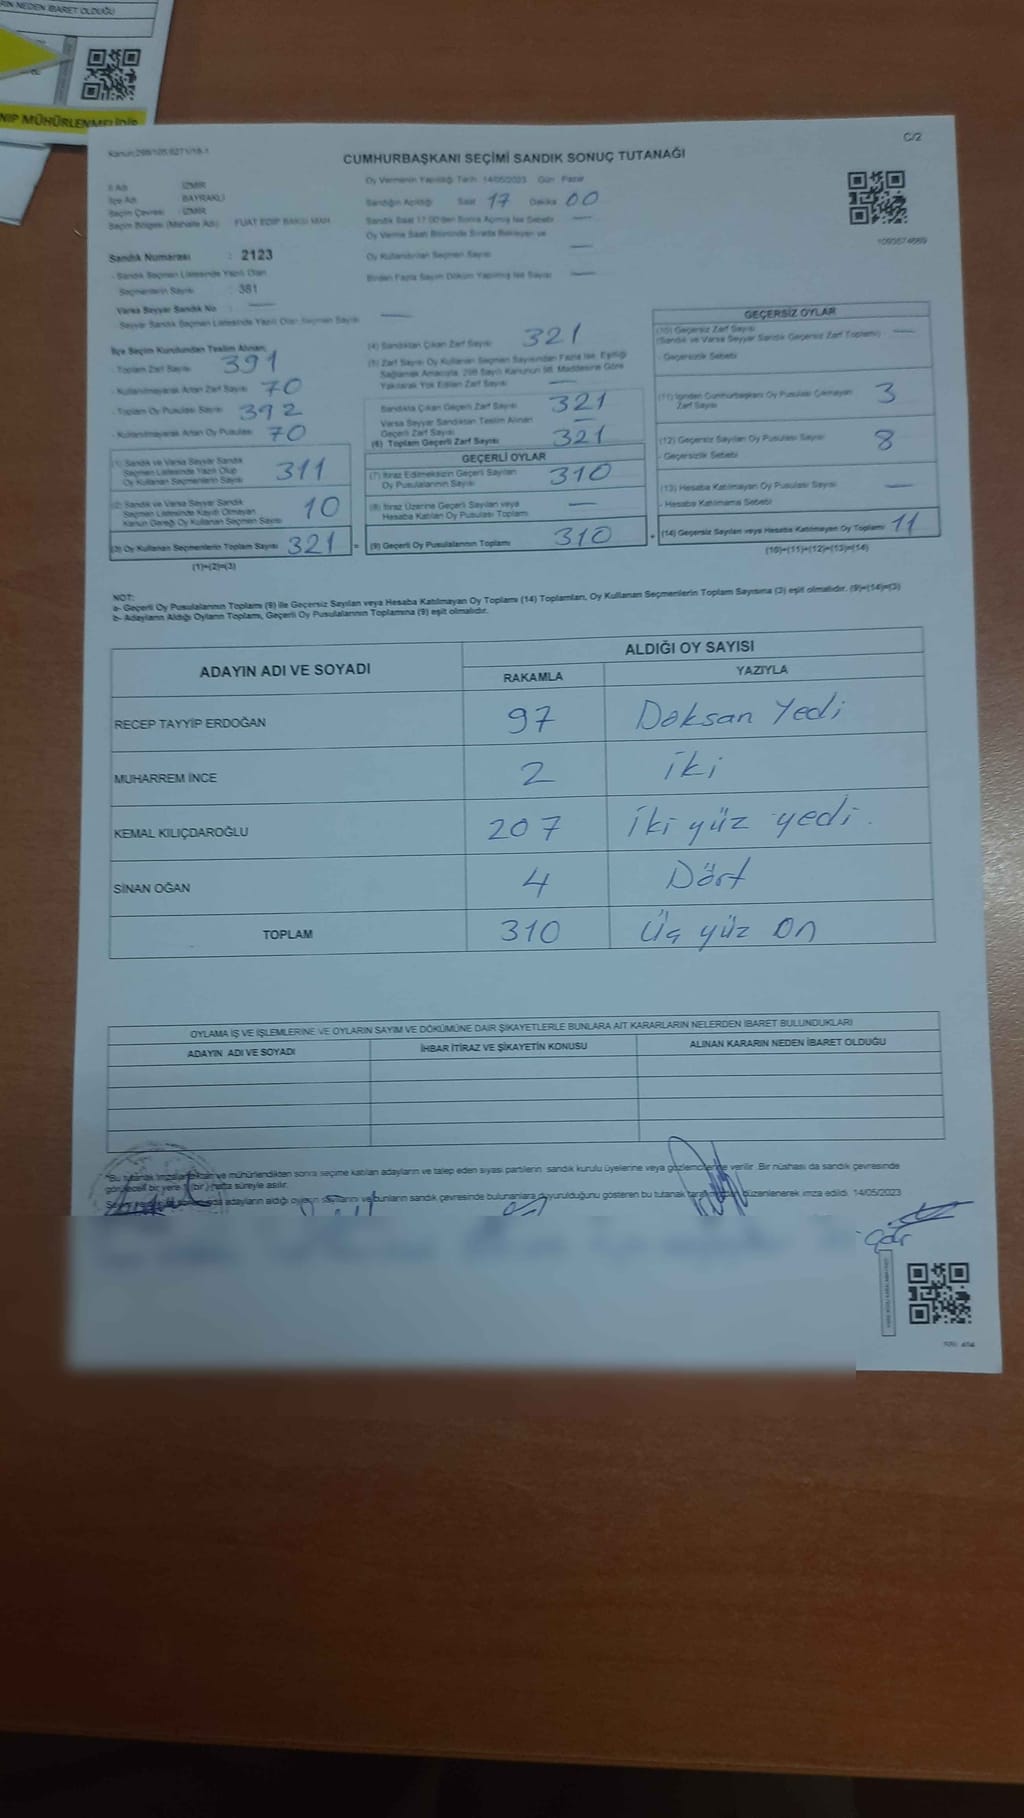 RIN NEDEN İBARET OLDUĞU
NIP MÜHÜRLENMELİDİR
C/2
CUMHURBAŞKANI SEÇİMİ SANDIK SONUÇ TUTANAĞI
İl Adı : İZMİR
İlçe Adı : BAYRAKLI
Seçim Çevresi : İZMİR
Seçim Bölgesi (Mahalle Adı) : FUAT EDİP BAKSI MAH.
Oy Vermenin Yapıldığı Tarih: 14/05/2023 Gün: Pazar
Sandığın Açıldığı Saat 17 Dakika 00
Sandık Saat 17:00'den Sonra Açılmış İse Sebebi —
Oy Verme Saati Bitiminde Sırada Bekleyen ve
Oy Kullandırılan Seçmen Sayısı —
Birden Fazla Sayım Döküm Yapılmış İse Sayısı —
Sandık Numarası : 2123
- Sandık Seçmen Listesinde Yazılı Olan
Seçmenlerin Sayısı : 381
Varsa Seyyar Sandık No : —
- Seyyar Sandık Seçmen Listesinde Yazılı Olan Seçmen Sayısı —
İlçe Seçim Kurulundan Teslim Alınan;
- Toplam Zarf Sayısı 391
- Kullanılmayarak Artan Zarf Sayısı 70
- Toplam Oy Pusulası Sayısı 392
- Kullanılmayarak Artan Oy Pusulası 70
(1) Sandık ve Varsa Seyyar Sandık
Seçmen Listesinde Yazılı Olup
Oy Kullanan Seçmenlerin Sayısı 311
(2) Sandık ve Varsa Seyyar Sandık
Seçmen Listesinde Kayıtlı Olmayan
Kanun Gereği Oy Kullanan Seçmen Sayısı 10
(3) Oy Kullanan Seçmenlerin Toplam Sayısı 321 =
(1)+(2)=(3)
(4) Sandıktan Çıkan Zarf Sayısı 321
(5) Zarf Sayısı Oy Kullanan Seçmen Sayısından Fazla İse, Eşitliği
Sağlamak Amacıyla, 298 Sayılı Kanunun 98. Maddesine Göre
Yakılarak Yok Edilen Zarf Sayısı —
Sandıkta Çıkan Geçerli Zarf Sayısı 321
Varsa Seyyar Sandıktan Teslim Alınan
Geçerli Zarf Sayısı —
(6) Toplam Geçerli Zarf Sayısı 321
GEÇERLİ OYLAR
(7) İtiraz Edilmeksizin Geçerli Sayılan
Oy Pusulalarının Sayısı 310
(8) İtiraz Üzerine Geçerli Sayılan veya
Hesaba Katılan Oy Pusulası Toplamı —
(9) Geçerli Oy Pusulalarının Toplamı 310 +
GEÇERSİZ OYLAR
(10) Geçersiz Zarf Sayısı
(Sandık ve Varsa Seyyar Sandık Geçersiz Zarf Toplamı) —
- Geçersizlik Sebebi
(11) İçinden Cumhurbaşkanı Oy Pusulası Çıkmayan
Zarf Sayısı 3
(12) Geçersiz Sayılan Oy Pusulası Sayısı 8
- Geçersizlik Sebebi
(13) Hesaba Katılmayan Oy Pusulası Sayısı —
- Hesaba Katılmama Sebebi
(14) Geçersiz Sayılan veya Hesaba Katılmayan Oy Toplamı 11
(10)+(11)+(12)+(13)=(14)
NOT:
a- Geçerli Oy Pusulalarının Toplamı (9) ile Geçersiz Sayılan veya Hesaba Katılmayan Oy Toplamı (14) Toplamları, Oy Kullanan Seçmenlerin Toplam Sayısına (3) eşit olmalıdır. (9)+(14)=(3)
b- Adayların Aldığı Oyların Toplamı, Geçerli Oy Pusulalarının Toplamına (9) eşit olmalıdır.
ADAYIN ADI VE SOYADI ALDIĞI OY SAYISI
RAKAMLA YAZIYLA
RECEP TAYYİP ERDOĞAN 97 Doksan Yedi
MUHARREM İNCE 2 iki
KEMAL KILIÇDAROĞLU 207 iki yüz yedi.
SİNAN OĞAN 4 Dört
TOPLAM 310 Üç yüz On
OYLAMA İŞ VE İŞLEMLERİNE VE OYLARIN SAYIM VE DÖKÜMÜNE DAİR ŞİKAYETLERLE BUNLARA AİT KARARLARIN NELERDEN İBARET BULUNDUKLARI
ADAYIN ADI VE SOYADI İHBAR İTİRAZ VE ŞİKAYETİN KONUSU ALINAN KARARIN NEDEN İBARET OLDUĞU
*Bu tutanak ve mühürlendikten sonra seçime katılan adayların ve talep eden siyasi partilerin sandık kurulu üyelerine veya gözlemcilerine verilir. Bir nüshası da sandık çevresinde
görülecek bir yere 1 (bir) hafta süreyle asılır.
adayların aldığı oyların sayılarını ve bunların sandık çevresinde bulunanlara duyurulduğunu gösteren bu tutanak düzenlenerek imza edildi. 14/05/2023